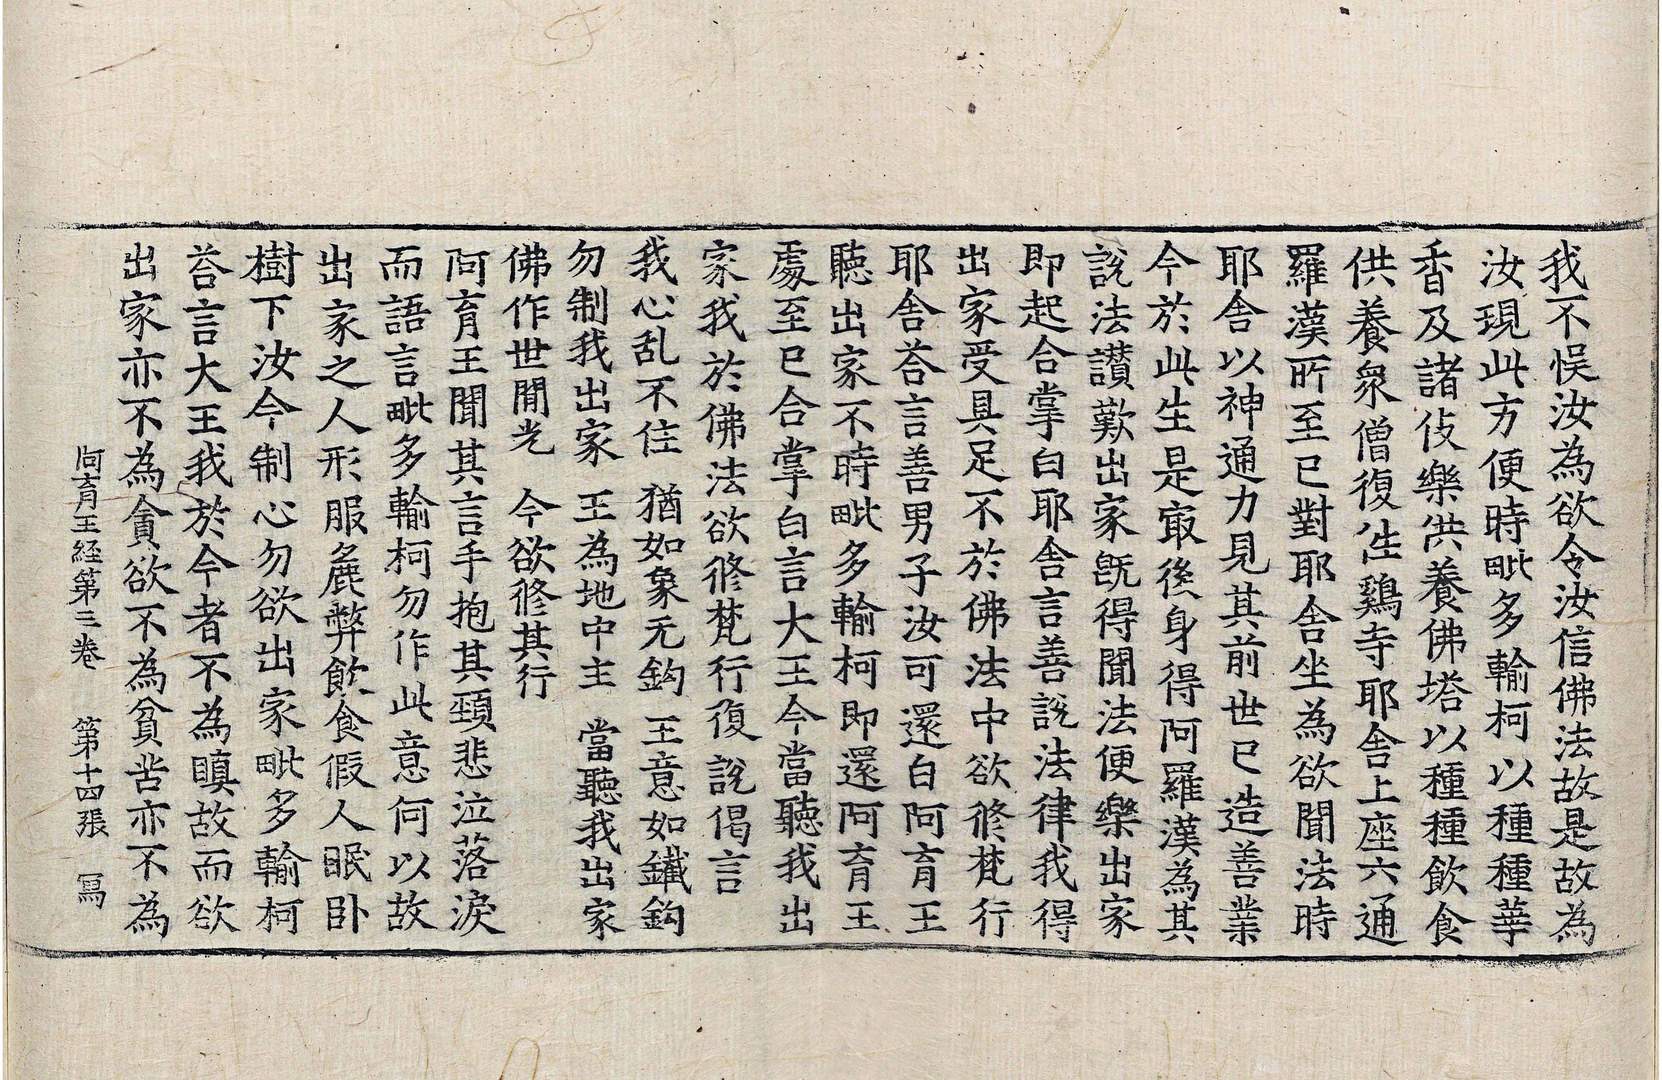 我不悞汝為欲令汝信佛法故是故為
汝現此方便時毗多輸柯以種種華
香及諸伎樂供養佛塔以種種飲食
供養衆僧復往鷄寺耶舍上座六通
羅漢所至已對耶舍坐為欲聞法時
耶舍以神通力見其前世已造善業
今於此生是㝡後身得阿羅漢為其
說法讃歎出家旣得聞法便樂出家
即起合掌白耶舍言善說法律我得
出家受具足不於佛法中欲修梵行
耶舍荅言善男子汝可還白阿育王
聽出家不時毗多輸柯即還阿育王
處至已合掌白言大王今當聽我出
家我於佛法欲修梵行復說偈言
我心乱不住　猶如象无鈎　王意如鐵鈎
勿制我出家　王為地中主　當聽我出家
佛作世閒光　今欲修其行
阿育王聞其言手抱其頸悲泣落淚
而語言毗多輸柯勿作此意何以故
出家之人形服麁弊飮食假人眠卧
樹下汝今制心勿欲出家毗多輸柯
荅言大王我於今者不為瞋故而欲
出家亦不為貪欲不為貧苦亦不為
阿育王経第三卷　第十四張　冩